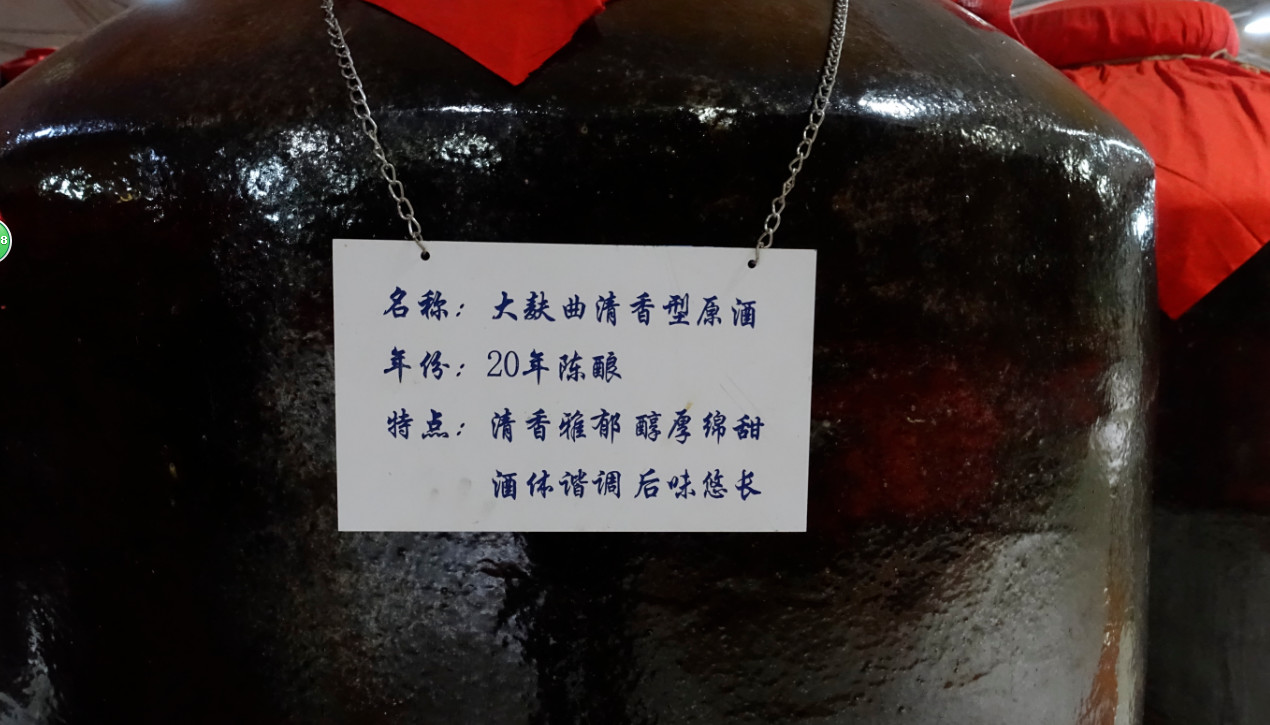 名称：大麸曲清香型原酒
年份：20年陈酿
特点：清香雅郁 醇厚绵甜
酒体谐调 后味悠长
8